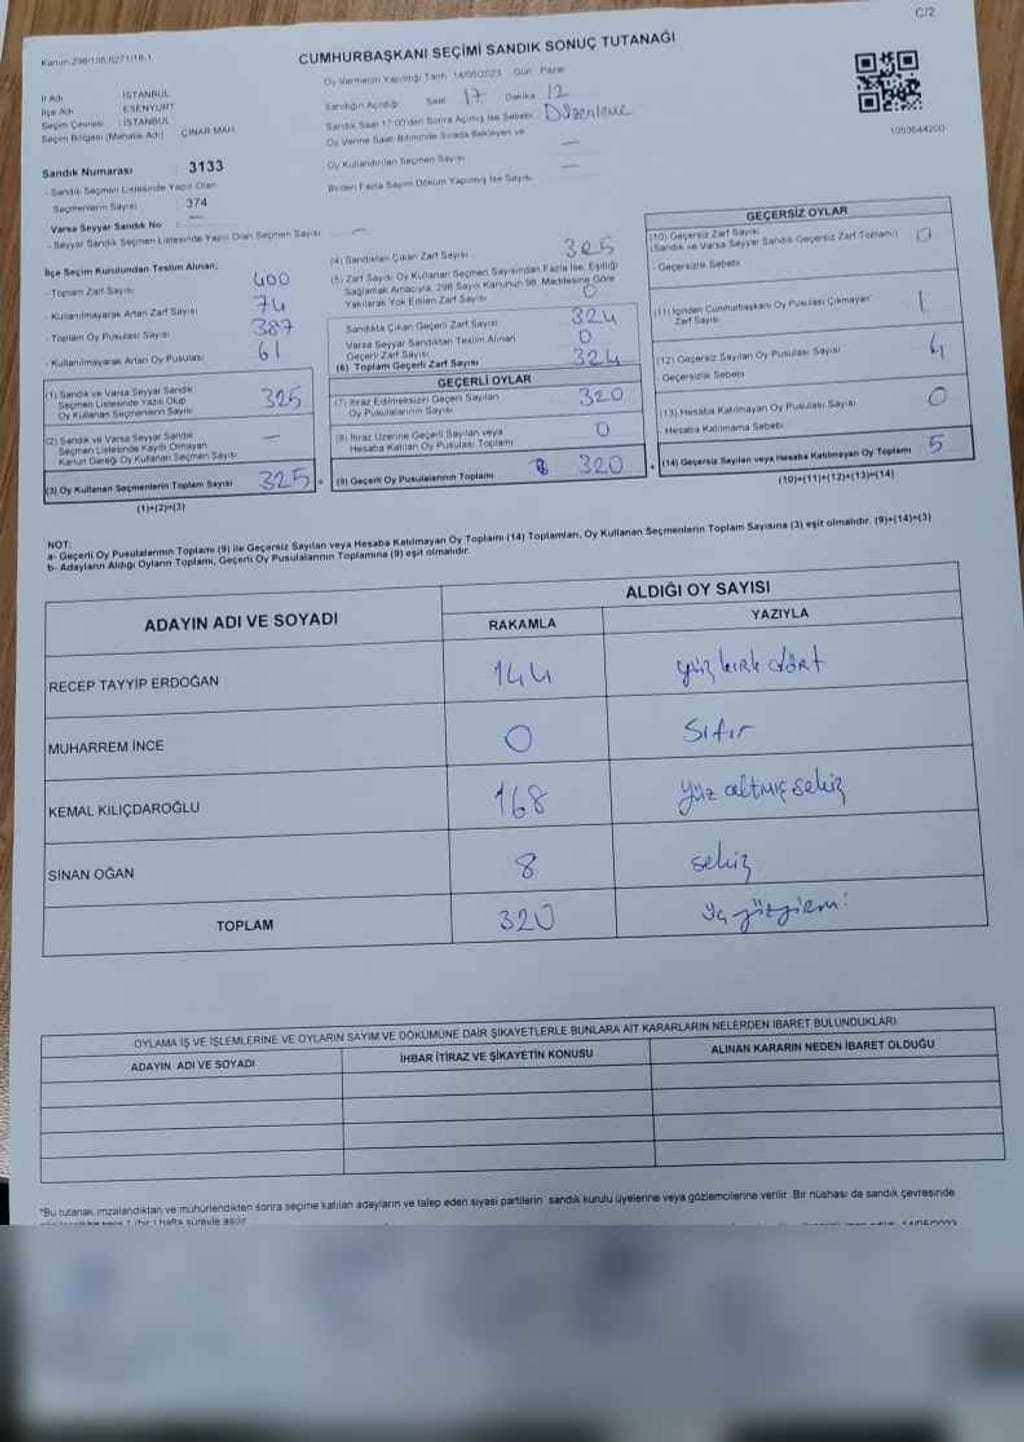 C/2
Kanun:298/105,6271/18-1
CUMHURBAŞKANI SEÇİMİ SANDIK SONUÇ TUTANAĞI
Oy Vermenin Yapıldığı Tarih 14/05/2023 Gün: Pazar
İl Adı : İSTANBUL
İlçe Adı : ESENYURT
Seçim Çevresi : İSTANBUL
Seçim Bölgesi (Mahalle Adı) ÇINAR MAH
Sandığın Açıldığı: Saat 17 Dakika 12
Sandık Saat 17:00'den Sonra Açılmış İse Sebebi Düzenleme
Oy Verme Saati Bitiminde Sırada Bekleyen ve
Oy Kullandırılan Seçmen Sayısı —
Birden Fazla Sayım Döküm Yapılmış İse Sayısı —
1093644200
Sandık Numarası : 3133
- Sandık Seçmen Listesinde Yazılı Olan
Seçmenlerin Sayısı : 374
Varsa Seyyar Sandık No : —
- Seyyar Sandık Seçmen Listesinde Yazılı Olan Seçmen Sayısı —
İlçe Seçim Kurulundan Teslim Alınan;
- Toplam Zarf Sayısı 400
- Kullanılmayarak Artan Zarf Sayısı 74
- Toplam Oy Pusulası Sayısı 387
- Kullanılmayarak Artan Oy Pusulası 61
(1) Sandık ve Varsa Seyyar Sandık
Seçmen Listesinde Yazılı Olup
Oy Kullanan Seçmenlerin Sayısı 325
(2) Sandık ve Varsa Seyyar Sandık
Seçmen Listesinde Kayıtlı Olmayan
Kanun Gereği Oy Kullanan Seçmen Sayısı —
(3) Oy Kullanan Seçmenlerin Toplam Sayısı 325 =
(1)+(2)=(3)
(4) Sandıktan Çıkan Zarf Sayısı 325
(5) Zarf Sayısı Oy Kullanan Seçmen Sayısından Fazla İse, Eşitliği
Sağlamak Amacıyla, 298 Sayılı Kanunun 98. Maddesine Göre
Yakılarak Yok Edilen Zarf Sayısı 0
Sandıkta Çıkan Geçerli Zarf Sayısı 324
Varsa Seyyar Sandıktan Teslim Alınan
Geçerli Zarf Sayısı 0
(6) Toplam Geçerli Zarf Sayısı 324
GEÇERLİ OYLAR
(7) İtiraz Edilmeksizin Geçerli Sayılan
Oy Pusulalarının Sayısı 320
(8) İtiraz Üzerine Geçerli Sayılan veya
Hesaba Katılan Oy Pusulası Toplamı 0
(9) Geçerli Oy Pusulalarının Toplamı 320 +
GEÇERSİZ OYLAR
(10) Geçersiz Zarf Sayısı
(Sandık ve Varsa Seyyar Sandık Geçersiz Zarf Toplamı) 0
- Geçersizlik Sebebi
(11) İçinden Cumhurbaşkanı Oy Pusulası Çıkmayan
Zarf Sayısı 1
(12) Geçersiz Sayılan Oy Pusulası Sayısı 4
Geçersizlik Sebebi
(13) Hesaba Katılmayan Oy Pusulası Sayısı 0
- Hesaba Katılmama Sebebi
(14) Geçersiz Sayılan veya Hesaba Katılmayan Oy Toplamı 5
(10)+(11)+(12)+(13)=(14)
NOT:
a- Geçerli Oy Pusulalarının Toplamı (9) ile Geçersiz Sayılan veya Hesaba Katılmayan Oy Toplamı (14) Toplamları, Oy Kullanan Seçmenlerin Toplam Sayısına (3) eşit olmalıdır. (9)+(14)=(3)
b- Adayların Aldığı Oyların Toplamı, Geçerli Oy Pusulalarının Toplamına (9) eşit olmalıdır.
ADAYIN ADI VE SOYADI
ALDIĞI OY SAYISI
RAKAMLA YAZIYLA
RECEP TAYYİP ERDOĞAN 144 yüz kırk dört
MUHARREM İNCE 0 Sıfır
KEMAL KILIÇDAROĞLU 168 yüz altmış sekiz
SİNAN OĞAN 8 sekiz
TOPLAM 320 üç yüz yirmi
OYLAMA İŞ VE İŞLEMLERİNE VE OYLARIN SAYIM VE DÖKÜMÜNE DAİR ŞİKAYETLERLE BUNLARA AİT KARARLARIN NELERDEN İBARET BULUNDUKLARI
ADAYIN ADI VE SOYADI İHBAR İTİRAZ VE ŞİKAYETİN KONUSU ALINAN KARARIN NEDEN İBARET OLDUĞU
*Bu tutanak imzalandıktan ve mühürlendikten sonra seçime katılan adayların ve talep eden siyasi partilerin sandık kurulu üyelerine veya gözlemcilerine verilir. Bir nüshası da sandık çevresinde
1 (bir) hafta süreyle asılır 14/05/2023